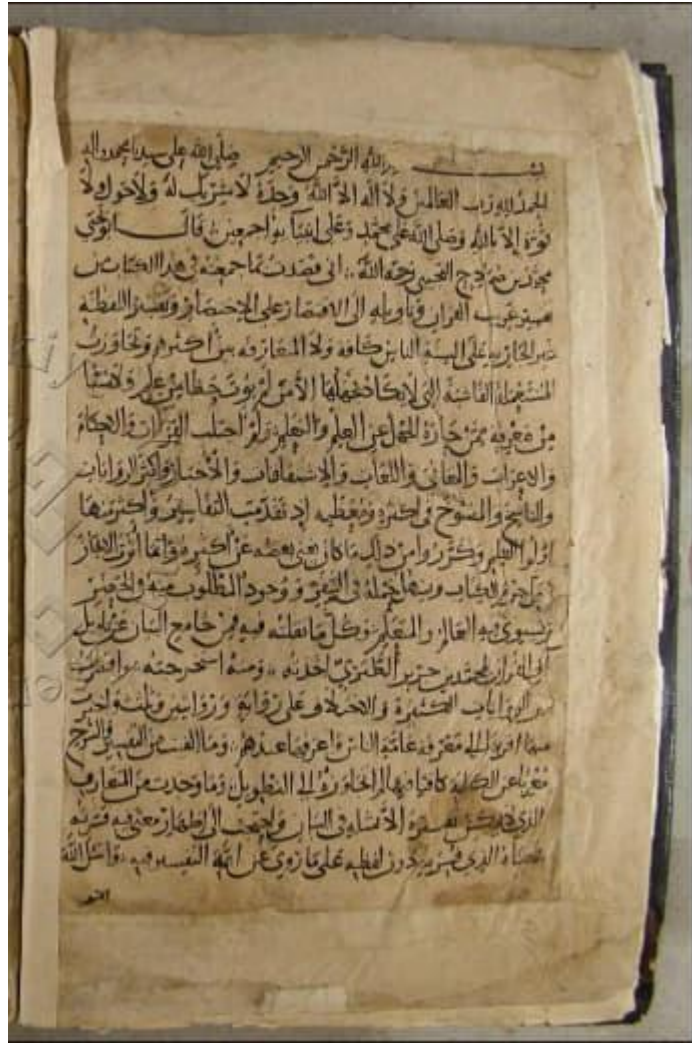 بسم الله الرحمن الرحيم صلى الله على سيدنا محمد واله
الحمد لله رب العالمين ولا اله الا الله وحده لا شريك له ولا حول ولا
قوة إلا بالله وصلى الله على محمد وعلى انبيائه اجمعين قال ابو يحيى
محمد بن صمادح التجيبي رحمه الله اني قصدت بما جمعته في هذا الكتاب من
تفسير غريب القران وتاويله الى الاقتصار على الاختصار وتفسير اللفظة
غير الجارية على السنة الناس كافة ولا المتعارفة بين اكثرهم وتجاوزت
المستعملة الفاشية التي لا يكاد يجهلها الا من لم يؤت حظا من علم ولا
من معرفة ممن جازه الجهل عن العلم والتعلم ولم اجتلب القران والاحكام
والاعراب والمعاني واللغات والاشتقاقات والاخبار واكثر الروايات
والناسخ والمنسوخ في اكثره ومعظمه اذ تقدمت التفاسير واكثر فيها
اولوا العلم وكرروا من ذلك ما كان يغني بعضه عن اكثره
جملة في ووجود المطلوب فيه في الحين
يستوي فيه العالم والمتعلم وكل ما نقلته فيه فمن جامع البيان عن تاويل
آي القران لمحمد بن جرير الطبري اخذته ومنه استخرجته واقتصرت
من الروايات الكثيرة والاختلاف على رواية وروايتين وثلاثة اخترت
منها اقربها الى معرفة عامة الناس واعرفها عندهم وما الفيت من التفسير والشرح
مغربا عن الكلمة كافيا فيها لم اتجاوزه الى التطويل وما وجدت من المتعارف
الذي تفسيره الامثلة في البيان واحتجت الى اظهار معنى فيه فسرته
الذي فسر به دون لفظه على ما روي عن ائمة التفسير فيه واسل الله